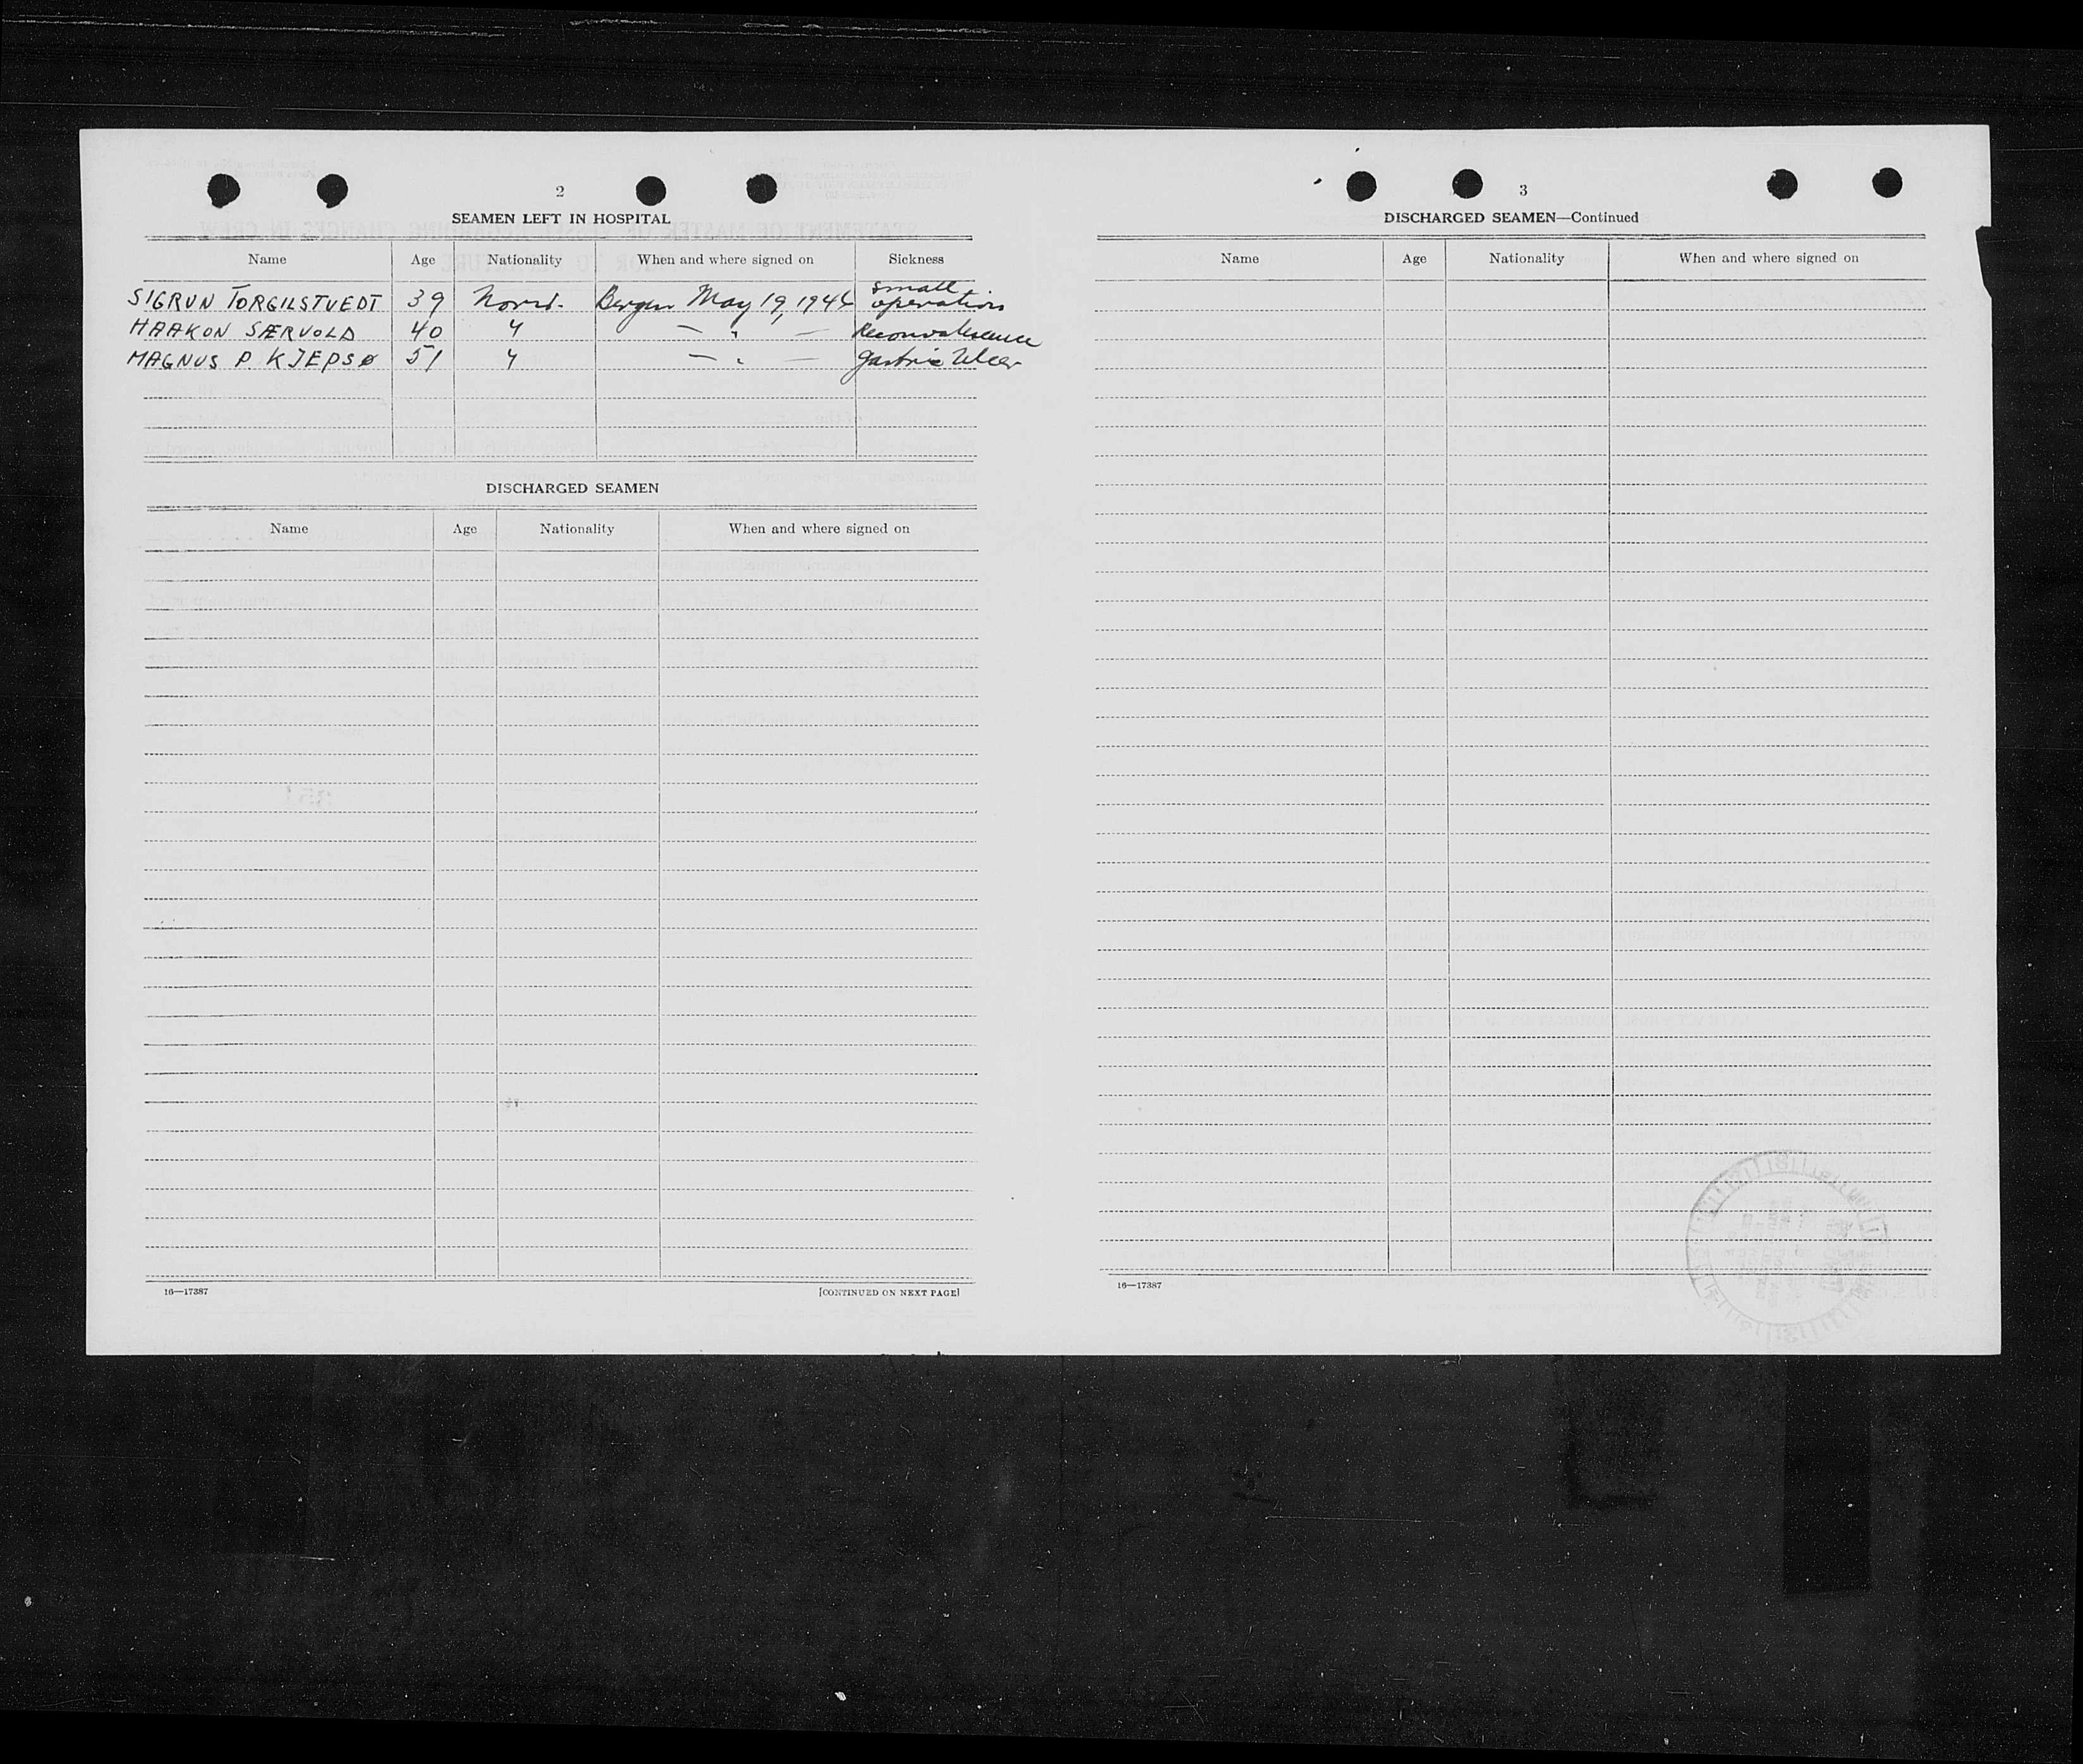 2
SEAMEN LEFT IN HOSPITAL
Name Age Nationality When and where signed on Sickness
SIGRUN TORGILSTVEDT 39 Norw. Bergen May 19, 1946 small operation
HAAKON SÆRVOLD 40 " — " — Reconvalesence
MAGNUS P. KJEPSØ 51 " — " — Gastric Ulcer
DISCHARGED SEAMEN
Name Age Nationality When and where signed on
16—17387 [CONTINUED ON NEXT PAGE]
3
DISCHARGED SEAMEN—Continued
Name Age Nationality When and where signed on
16—17387